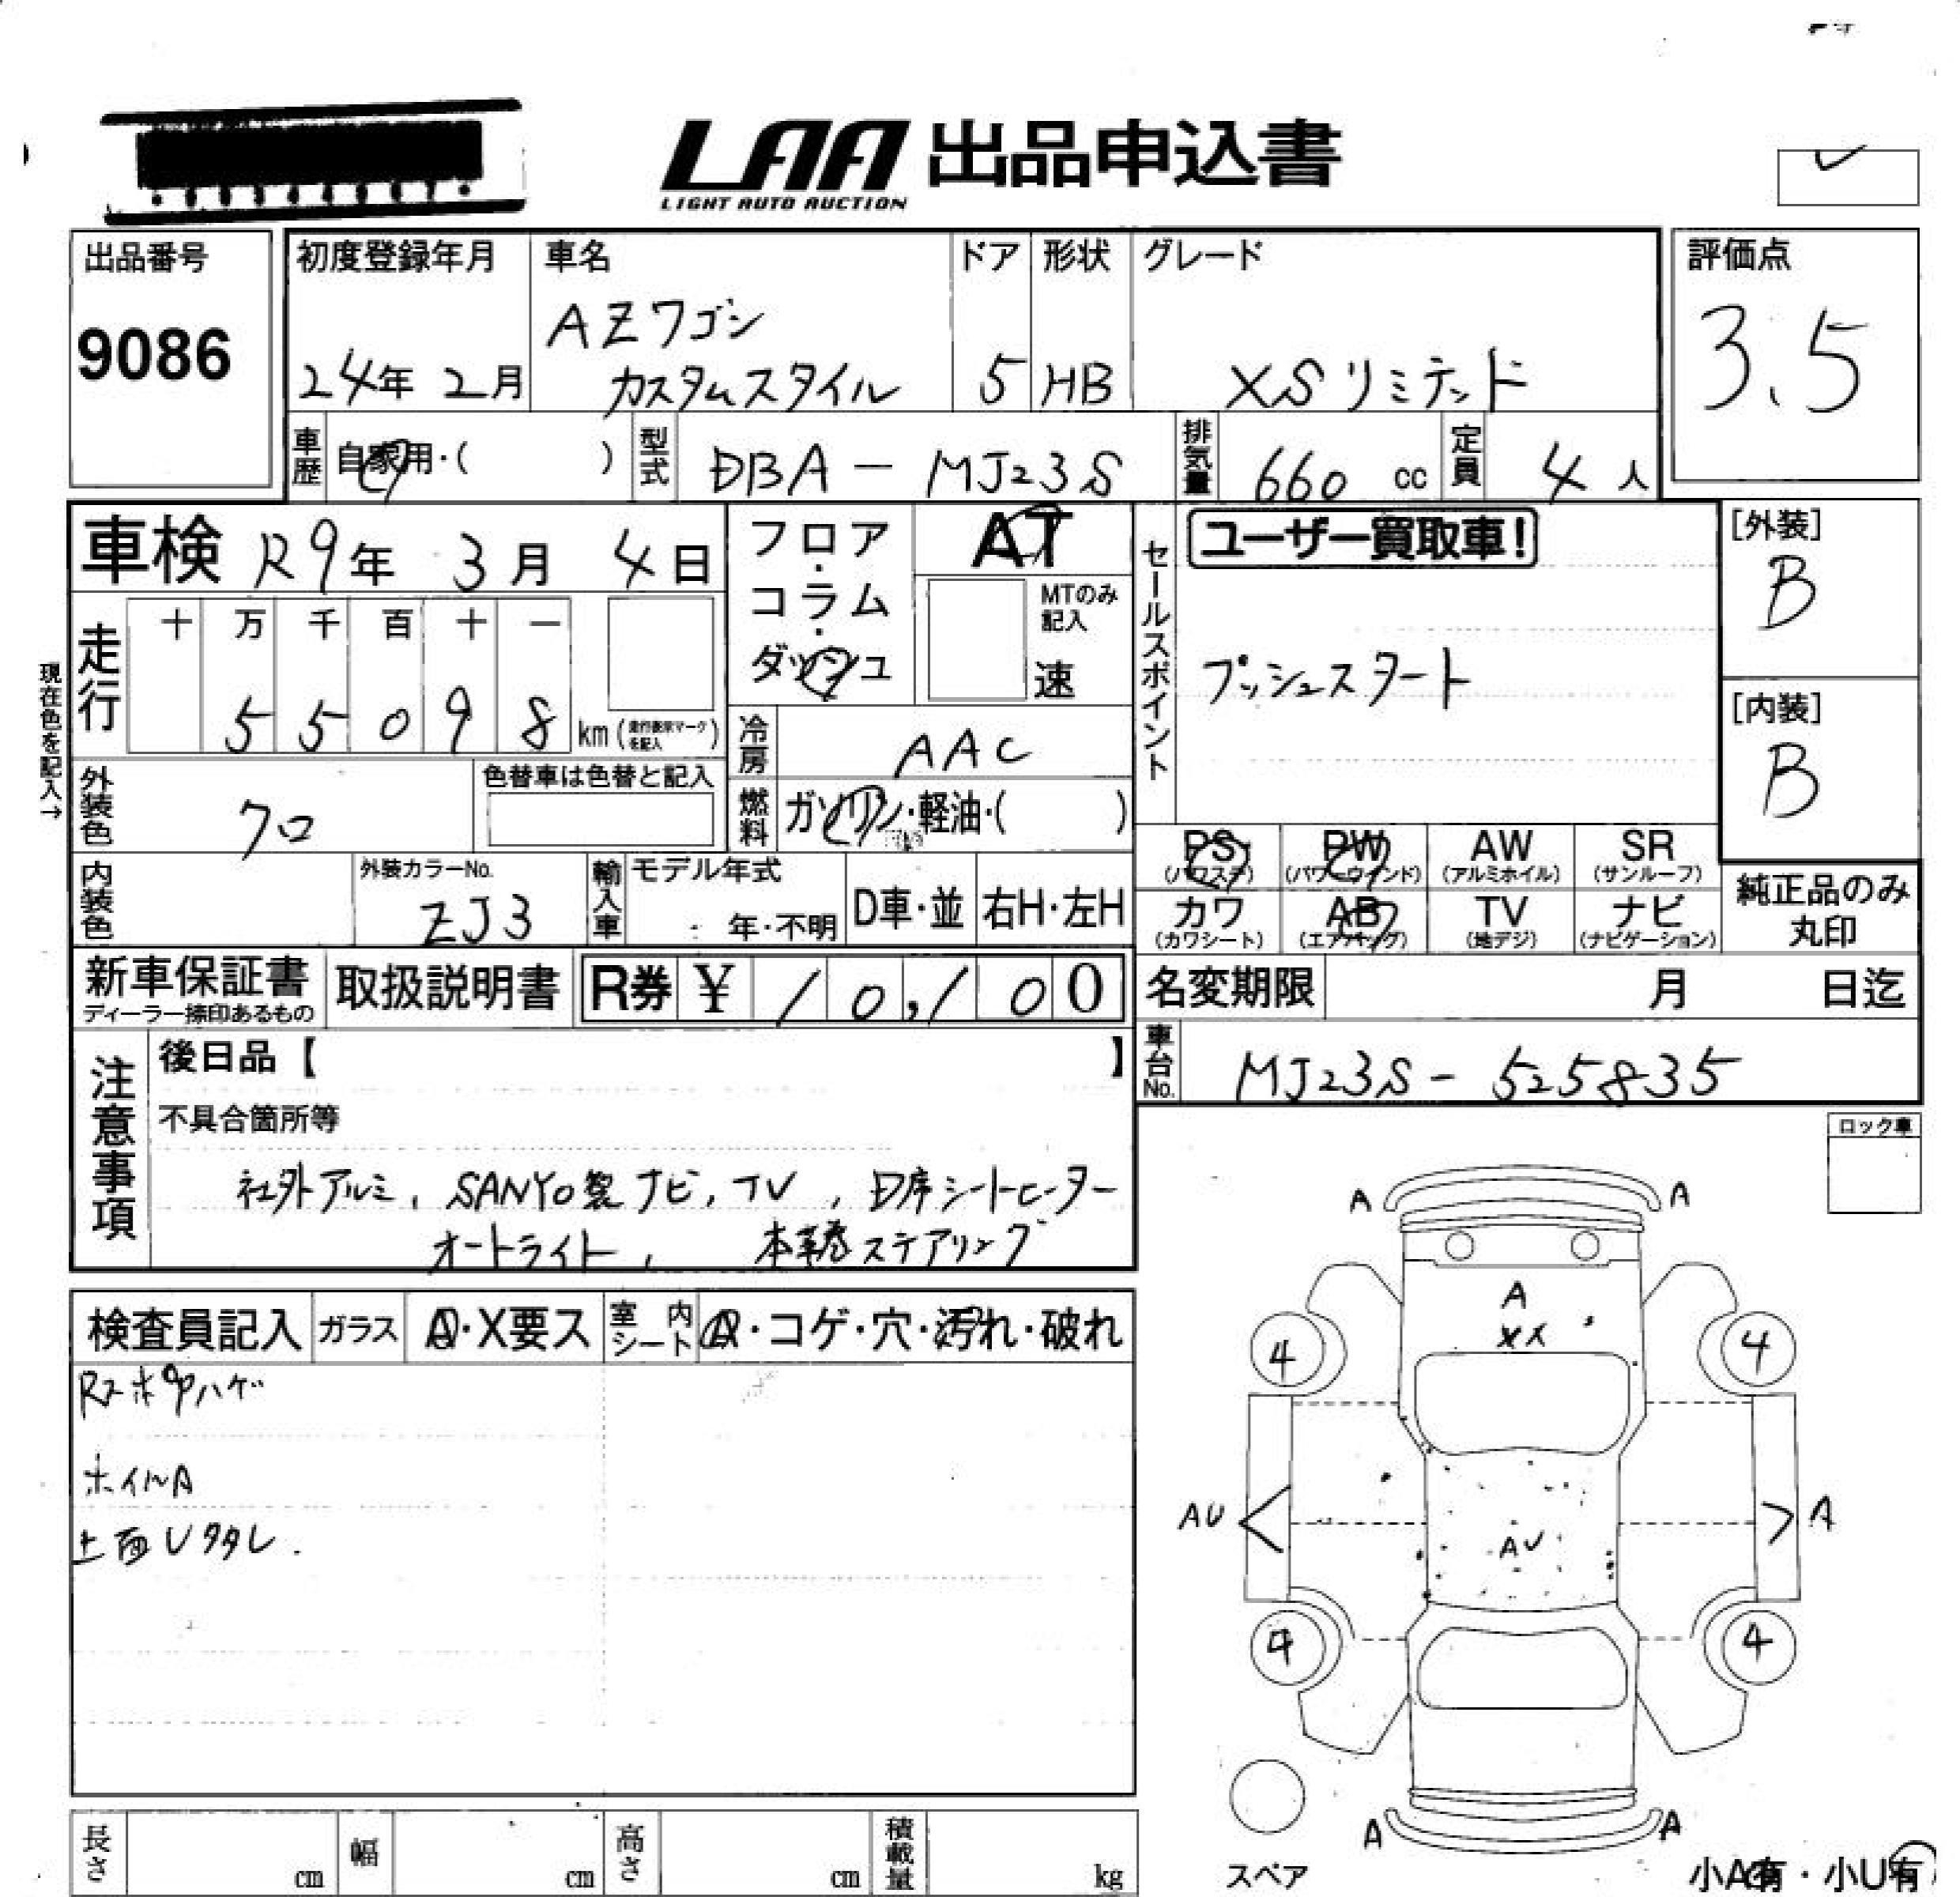 LAA 出品申込書
LIGHT AUTO AUCTION
出品番号
9086
初度登録年月
24年 2月
車名
AZワゴン
カスタムスタイル
ドア
5
形状
HB
グレード
XSリミテッド
評価点
3.5
車歴
自家用・( )
型式
DBA - MJ23S
排気量
660 cc
定員
4 人
車検 R9年 3月 4日
フロア・コラム・ダッシュ
AT
MTのみ記入
速
セールスポイント
ユーザー買取車!
プッシュスタート
[外装]
B
[内装]
B
現在色を記入→
走行
十 万 千 百 十 一
5 5 0 9 8 km (走行表示マークを記入)
冷房
AAC
燃料
ガソリン・軽油・( )
外装色
クロ
色替車は色替と記入
内装色
外装カラーNo.
ZJ3
輸入車
モデル年式
年・不明
D車・並
右H・左H
PS
(パワステ)
PW
(パワーウインド)
AW
(アルミホイル)
SR
(サンルーフ)
カワ
(カワシート)
AB
(エアバッグ)
TV
(地デジ)
ナビ
(ナビゲーション)
純正品のみ
丸印
新車保証書
ディーラー捺印あるもの
取扱説明書
R券 ¥ 10,100
名変期限 月 日迄
車台No.
MJ23S - 525835
注意事項
後日品【 】
不具合箇所等
社外アルミ, SANYO製ナビ, TV , D席シートヒーター
オートライト, 本革巻ステアリング
ロック車
検査員記入
ガラス
A・X要ス
室内シート
A・コゲ・穴・汚れ・破れ
ホイルA
上面Uタタレ.
A A
A
XX
4 4
AU A
AU
4 4
A A
スペア
小A有・小U有
長さ cm
幅 cm
高さ cm
積載量 kg